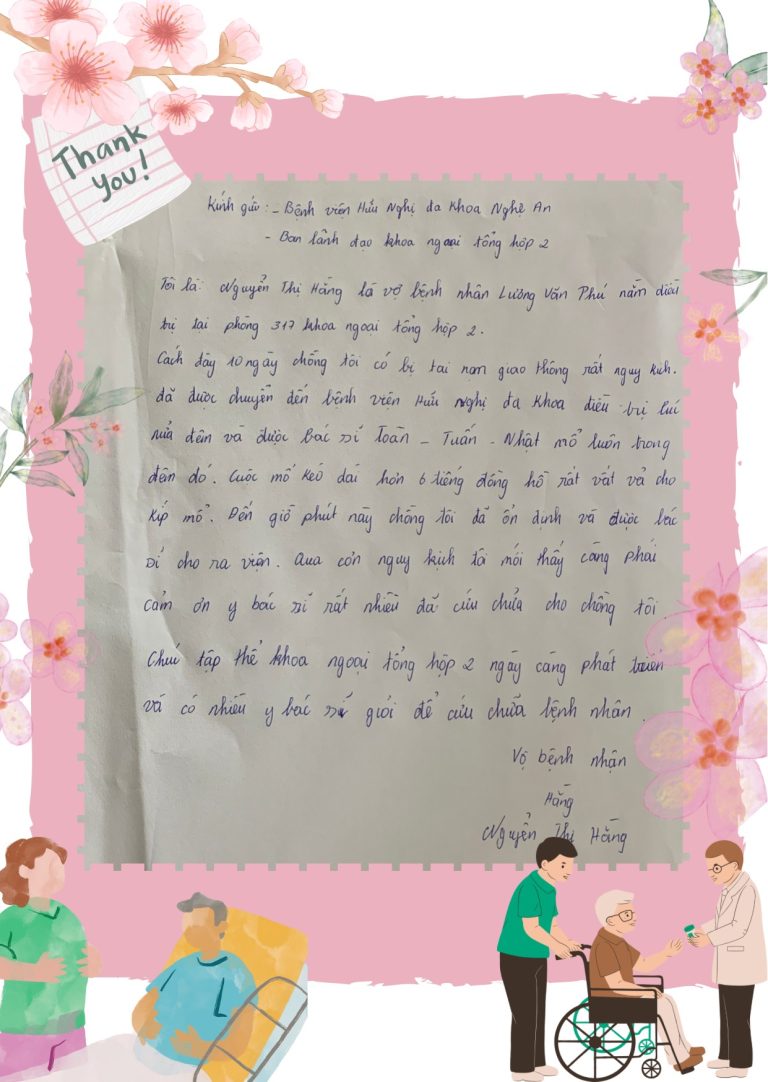 Thank
you!
Kính gửi: - Bệnh viện Hữu Nghị đa Khoa Nghệ An
- Ban lãnh đạo khoa ngoại tổng hộp 2
Tôi là: Nguyễn Thị Hằng là vợ bệnh nhân Lương Văn Phú nằm điều
trị tại phòng 317 khoa ngoại tổng hộp 2.
Cách đây 10 ngày chồng tôi có bị tai nạn giao thông rất nguy kịch.
đã được chuyển đến bệnh viện Hữu Nghị đa Khoa điều trị lúc
nửa đêm và được bác sĩ Toàn - Tuấn - Nhật mổ luôn trong
đêm đó. Cuộc mổ kéo dài hơn 6 tiếng đồng hồ rất vất vả cho
kíp mổ. Đến giờ phút này chồng tôi đã ổn định và được bác
sĩ cho ra viện. Qua cơn nguy kịch tôi mới thấy càng phải
cảm ơn y bác sĩ rất nhiều đã cứu chữa cho chồng tôi
Chúc tập thể khoa ngoại tổng hộp 2 ngày càng phát triển
và có nhiều y bác sĩ giỏi để cứu chữa bệnh nhân.
Vợ bệnh nhận
Hằng
Nguyễn Thị Hằng